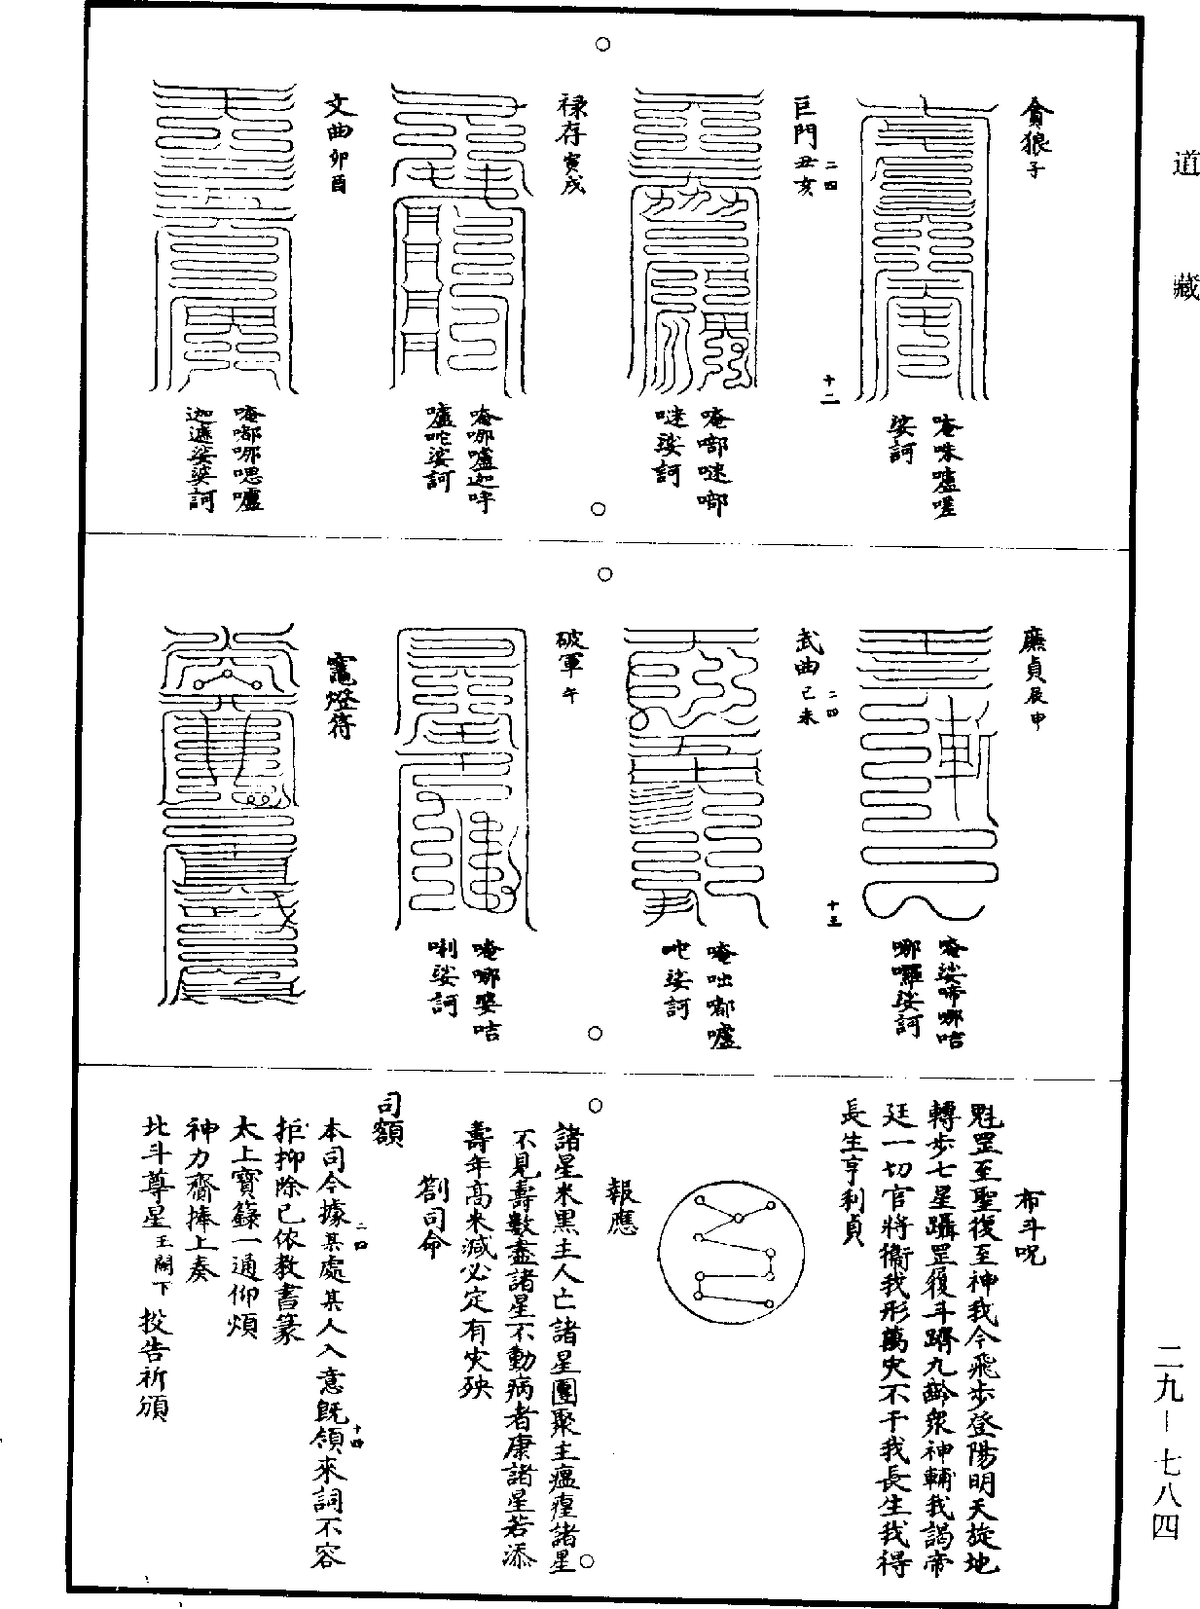 道藏
貪狼子
唵咮嚧嗟
娑訶
二四
十二
巨門丑亥
唵㗙㗚㗙
㗚娑訶
祿存寅戌
唵哪嚧迦吽
嚧咜娑訶
文曲卯酉
唵嘟哪嗯嚧
迦遮娑婆訶
廉貞辰申
唵娑啼哪咭
哪囉娑訶
二四
十三
武曲巳未
唵咄嘟嚧
吔娑訶
破軍午
唵哪婆咭
唎娑訶
竈燈符
布斗呪
魁罡至聖復至神我今飛步登陽明天旋地
轉步七星躡罡履斗躋九齡衆神輔我謁帝
廷一切官將衞我形萬灾不干我長生我得
長生亨利貞
報應
諸星米黑主人亡諸星團聚主瘟瘽諸星
不見壽數盡諸星不動病者康諸星若添
壽年高米減必定有灾殃
劄司命
司額
二四
十四
本司今據某處某人入意旣領來詞不容
拒抑除已依教書篆
太上寶籙一通仰煩
神力齎捧上奏
北斗尊星玉闕下投告祈頒
二九－七八四